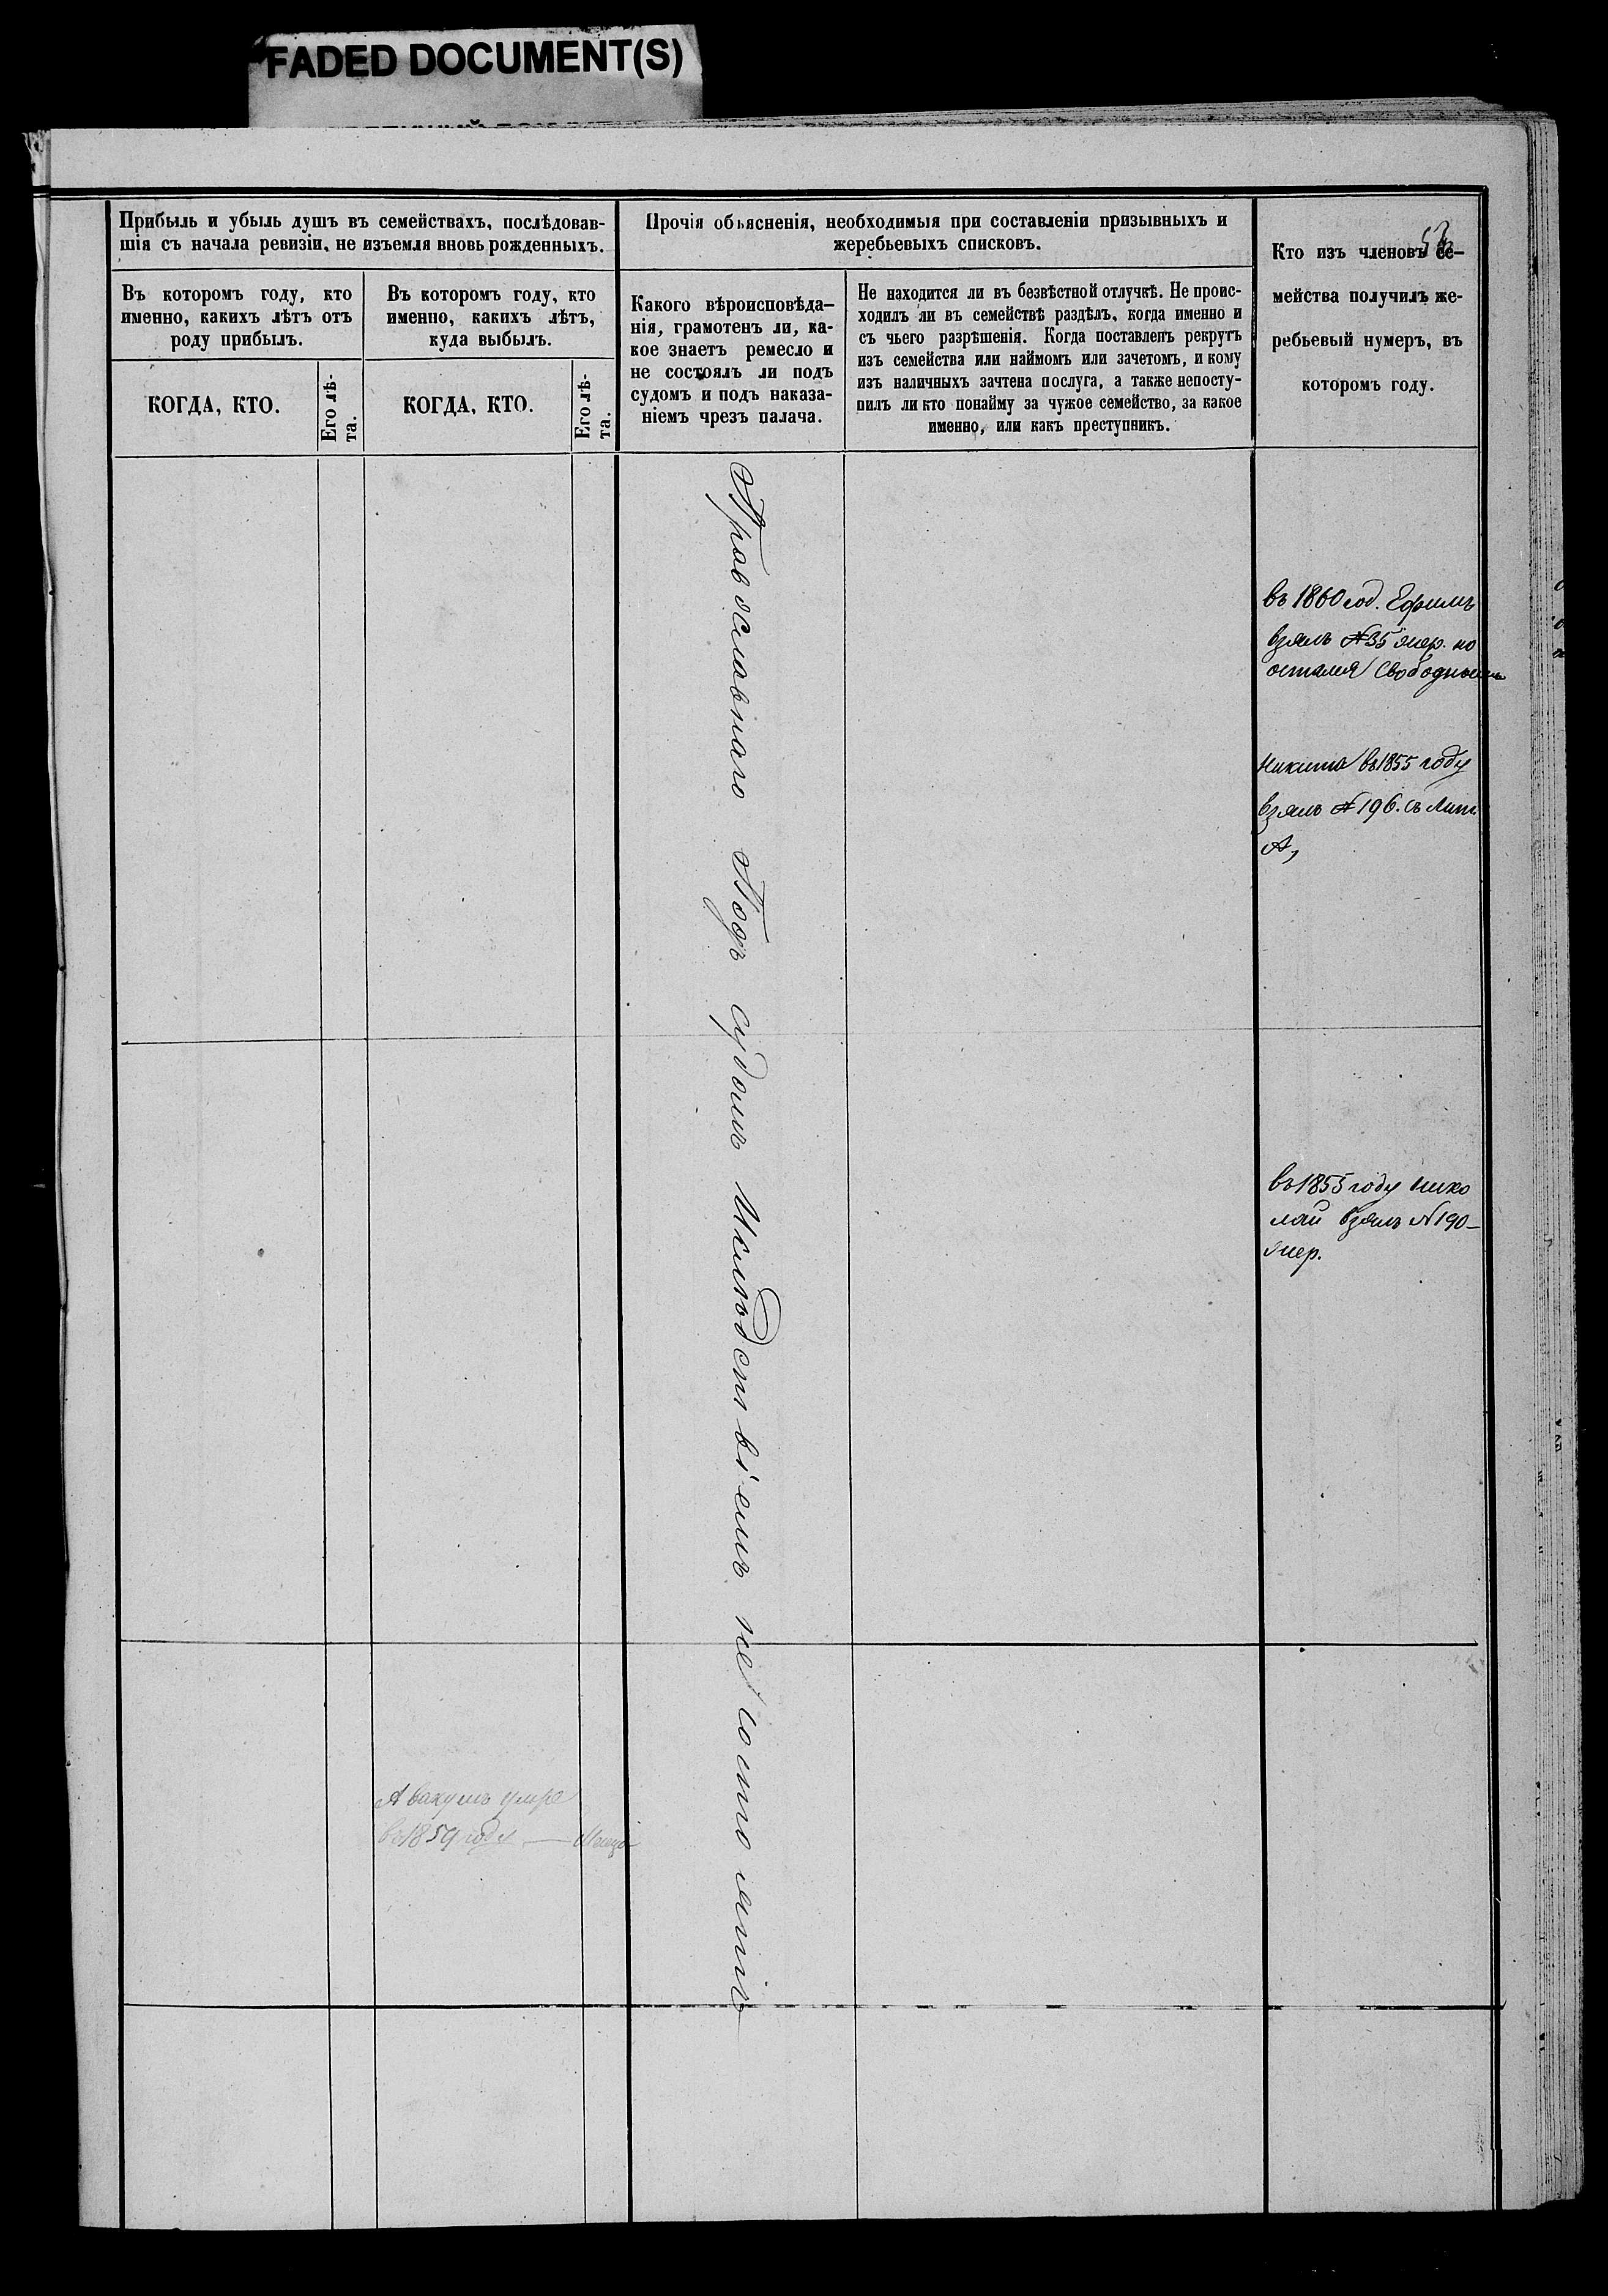 FADED DOCUMENT(S)
Прибыль и убыль душъ въ семействахъ, послѣдовав-
шія съ начала ревизіи, не изъемля вновь рожденныхъ.
Въ которомъ году, кто
именно, какихъ лѣтъ отъ
роду прибылъ.
КОГДА, КТО.
Его лѣ-
та.
Въ которомъ году, кто
именно, какихъ лѣтъ,
куда выбылъ.
КОГДА, КТО.
Его лѣ-
та.
Прочія объясненія, необходимыя при составленіи призывныхъ и
жеребьевыхъ списковъ.
Какого вѣроисповѣда-
нія, грамотенъ ли, ка-
кое знаетъ ремесло и
не состоялъ ли подъ
судомъ и подъ наказа-
ніемъ чрезъ палача.
Не находится ли въ безвѣстной отлучкѣ. Не проис-
ходилъ ли въ семействѣ раздѣлъ, когда именно и
съ чьего разрѣшенія. Когда поставленъ рекрутъ
изъ семейства или наймомъ или зачетомъ, и кому
изъ наличныхъ зачтена послуга, а также непосту-
пилъ ли кто понайму за чужое семейство, за какое
именно, или какъ преступникъ.
Кто изъ членовъ се-
мейства получилъ же-
ребьевый нумеръ, въ
которомъ году.
Православнаго Подъ судомъ Ислѣдствіемъ не состоятъ
въ 1860 год. Ефимъ
взялъ №35 жер. но
остался Свободнымъ
Никита въ 1855 году
взялъ № 196. съ Лит.
А,
въ 1855 году Нико
лай взялъ №190-
жер.
Авакумъ умре
въ 1859 году —